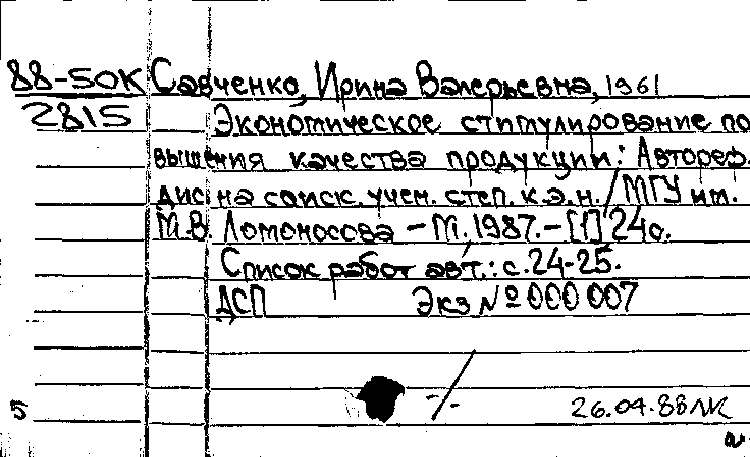 88-50К Савченко, Ирина Валерьевна, 1961
2815 Экономическое стимулирование по
вышения качества продукции: Автореф.
дис. на соиск. учен. степ. к.э.н. / МГУ им.
М.В. Ломоносова – М. 1987. – [1] 24 с.
Список работ авт.: с. 24-25.
ДСП Экз № 000 007
5 26.04.88